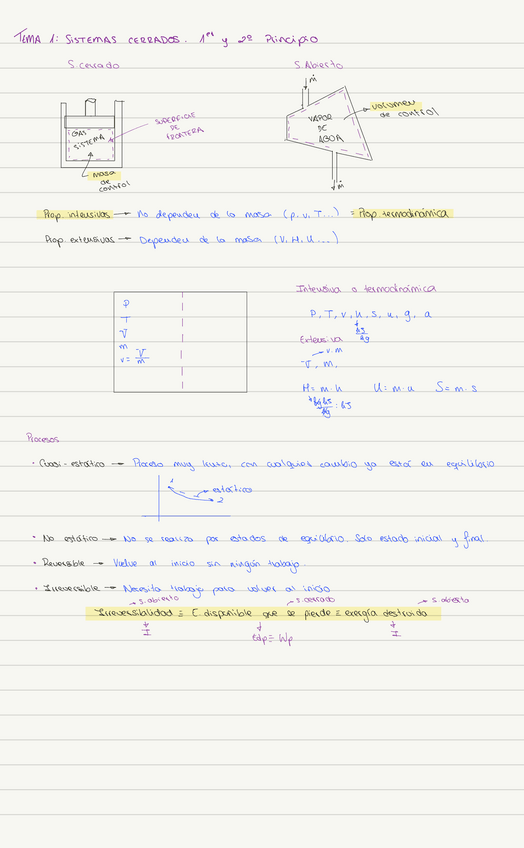 TEMA 1: SISTEMAS CERRADOS. 1er y 2º Principio
S. cerrado
S. Abierto
ṁ
GAS
SISTEMA
SUPERFICIE
DE
FRONTERA
masa
de
control
VAPOR
DE
AGUA
volumen
de control
ṁ
Prop. intensivas → No dependen de la masa (p, v, T...) = Prop. termodinámica
Prop. extensivas → Dependen de la masa (V, H, U...)
P
T
V
m
v = V/m
Intensiva o termodinámica
P, T, v, h, s, u, g, a
kJ/kg
Extensiva
v·m
V, m,
H = m·h U = m·u S = m·s
Procesos
· Cuasi-estático → Proceso muy lento, con cualquier cambio ya está en equilibrio
1
estático
2
· No estático → No se realiza por estados de equilibrio. Solo estado inicial y final.
· Reversible → Vuelve al inicio sin ningún trabajo.
· Irreversible → Necesita trabajo para volver al inicio
S. abierto S. cerrado S. abierto
Irreversibilidad = E. disponible que se pierde = exergía destruida
I
I